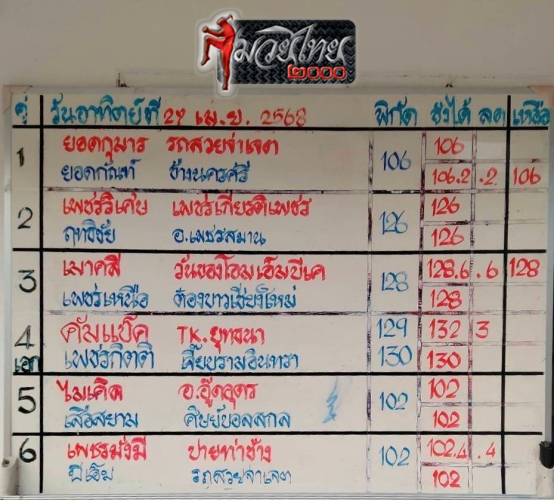 มวยไทย
๒๐๐๐
คู่ วันอาทิตย์ที่ 27 เม.ย. 2568 พิกัด ชั่งได้ ลด เหลือ
1 ยอดกุมาร รถสวยจ่าเจต 106 106
ยอดกัณฑ์ ช้างนครศรี 106.2 .2 106
2 เพชรวิเศษ เพชรเกียรติเพชร 126 126
ฤทธิชัย อ.เพชรสมาน 126
3 เมาคลี วันของโอมเอ็มบีเค 128 128.6 .6 128
เพชรเหนือ ต้องบาวเชียงใหม่ 128
4 คัมแบ๊ค TK.ยุทธนา 129 132 3
เอก เพชรกิตติ เสี่ยบรามอินทรา 130 130
5 ไมเคิล อ.อู๊ดอุดร 102 102
เสือสยาม ศิษย์บอลสกล 102
6 เพชรมั่งมี ปายท่าช้าง 102 102.4 .4
บีเอ็ม รถสวยจ่าเจต 102